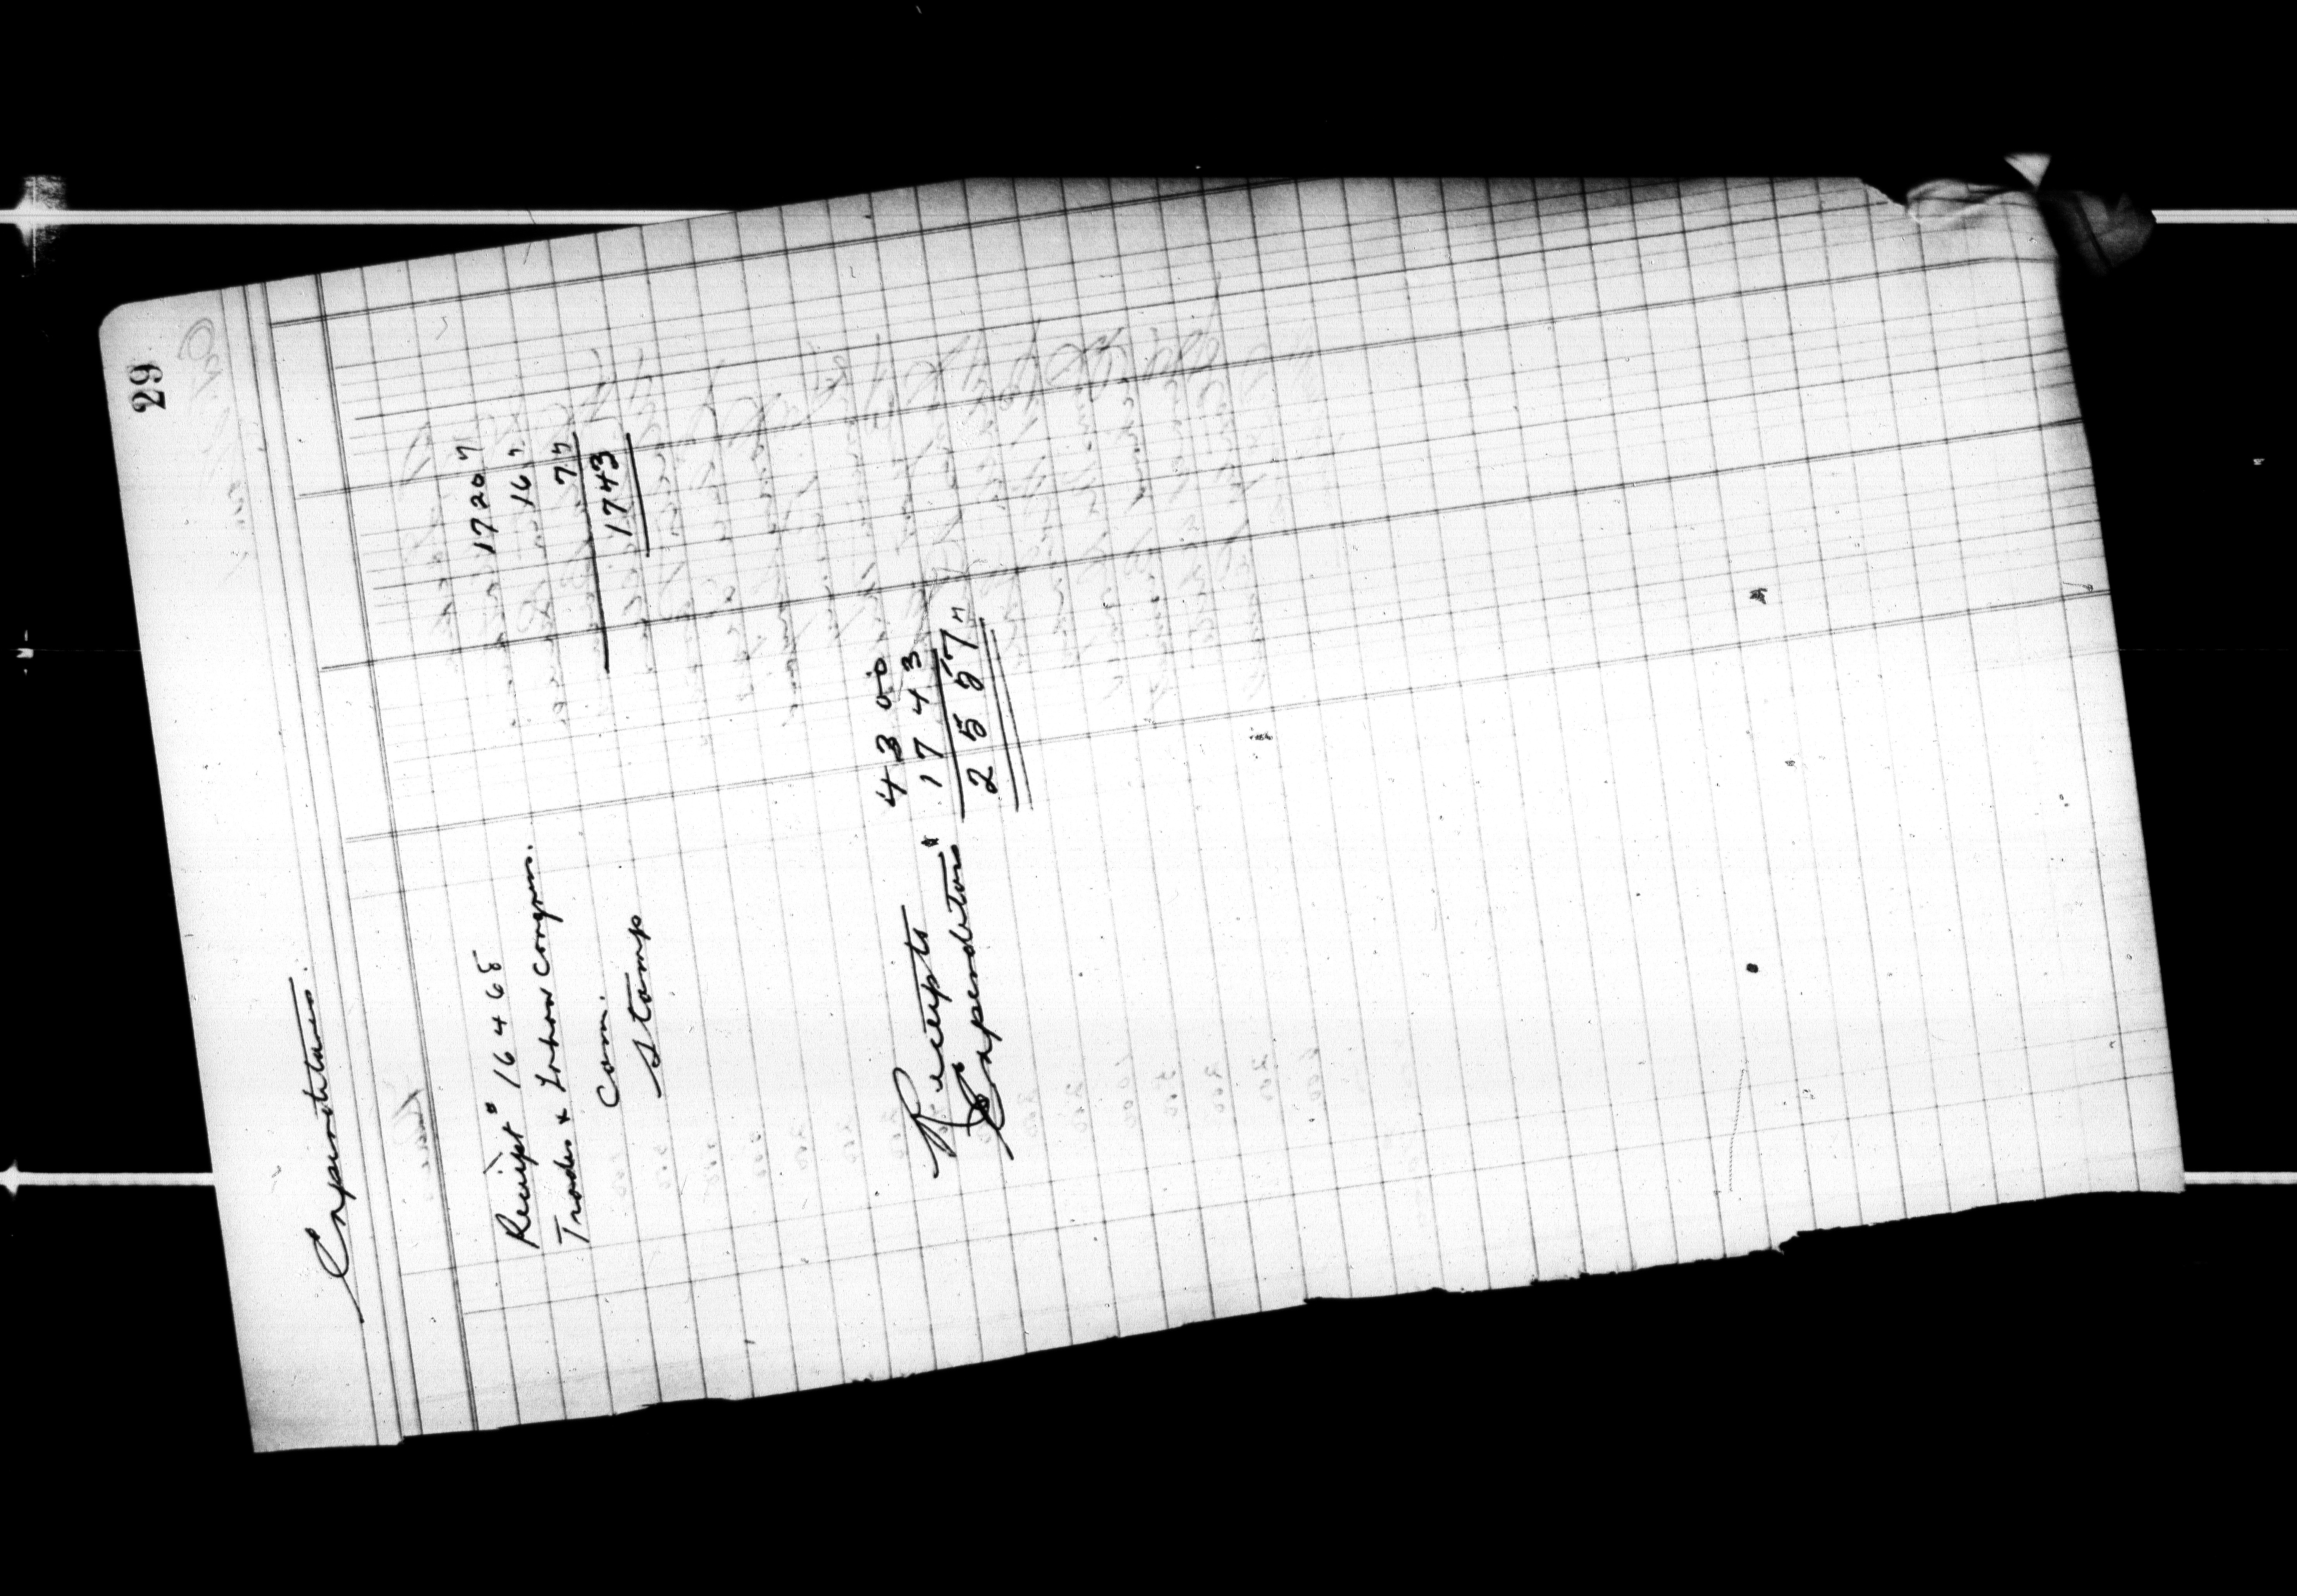 29
Expenditures.
Receipt # 16468 1720
Trades & Labour Congress. 16
Com. 7
Stamps 1743
Receipts 4300
Expenditures 1743
2557